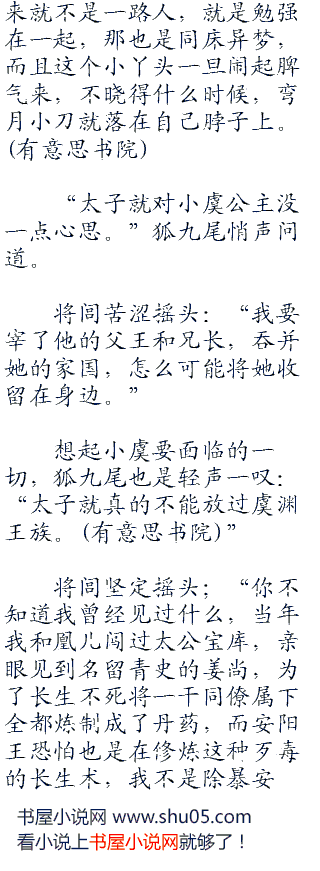 来就不是一路人，就是勉强
在一起，那也是同床异梦，
而且这个小丫头一旦闹起脾
气来，不晓得什么时候，弯
月小刀就落在自己脖子上。
(有意思书院)
“太子就对小虞公主没
一点心思。”狐九尾悄声问
道。
将闾苦涩摇头：“我要
宰了他的父王和兄长，吞并
她的家国，怎么可能将她收
留在身边。”
想起小虞要面临的一
切，狐九尾也是轻声一叹：
“太子就真的不能放过虞渊
王族。(有意思书院)”
将闾坚定摇头；“你不
知道我曾经见过什么，当年
我和凰儿闯过太公宝库，亲
眼见到名留青史的姜尚，为
了长生不死将一干同僚属下
全都炼制成了丹药，而安阳
王恐怕也是在修炼这种歹毒
的长生术，我不是除暴安
书屋小说网 www.shu05.com
看小说上书屋小说网就够了！